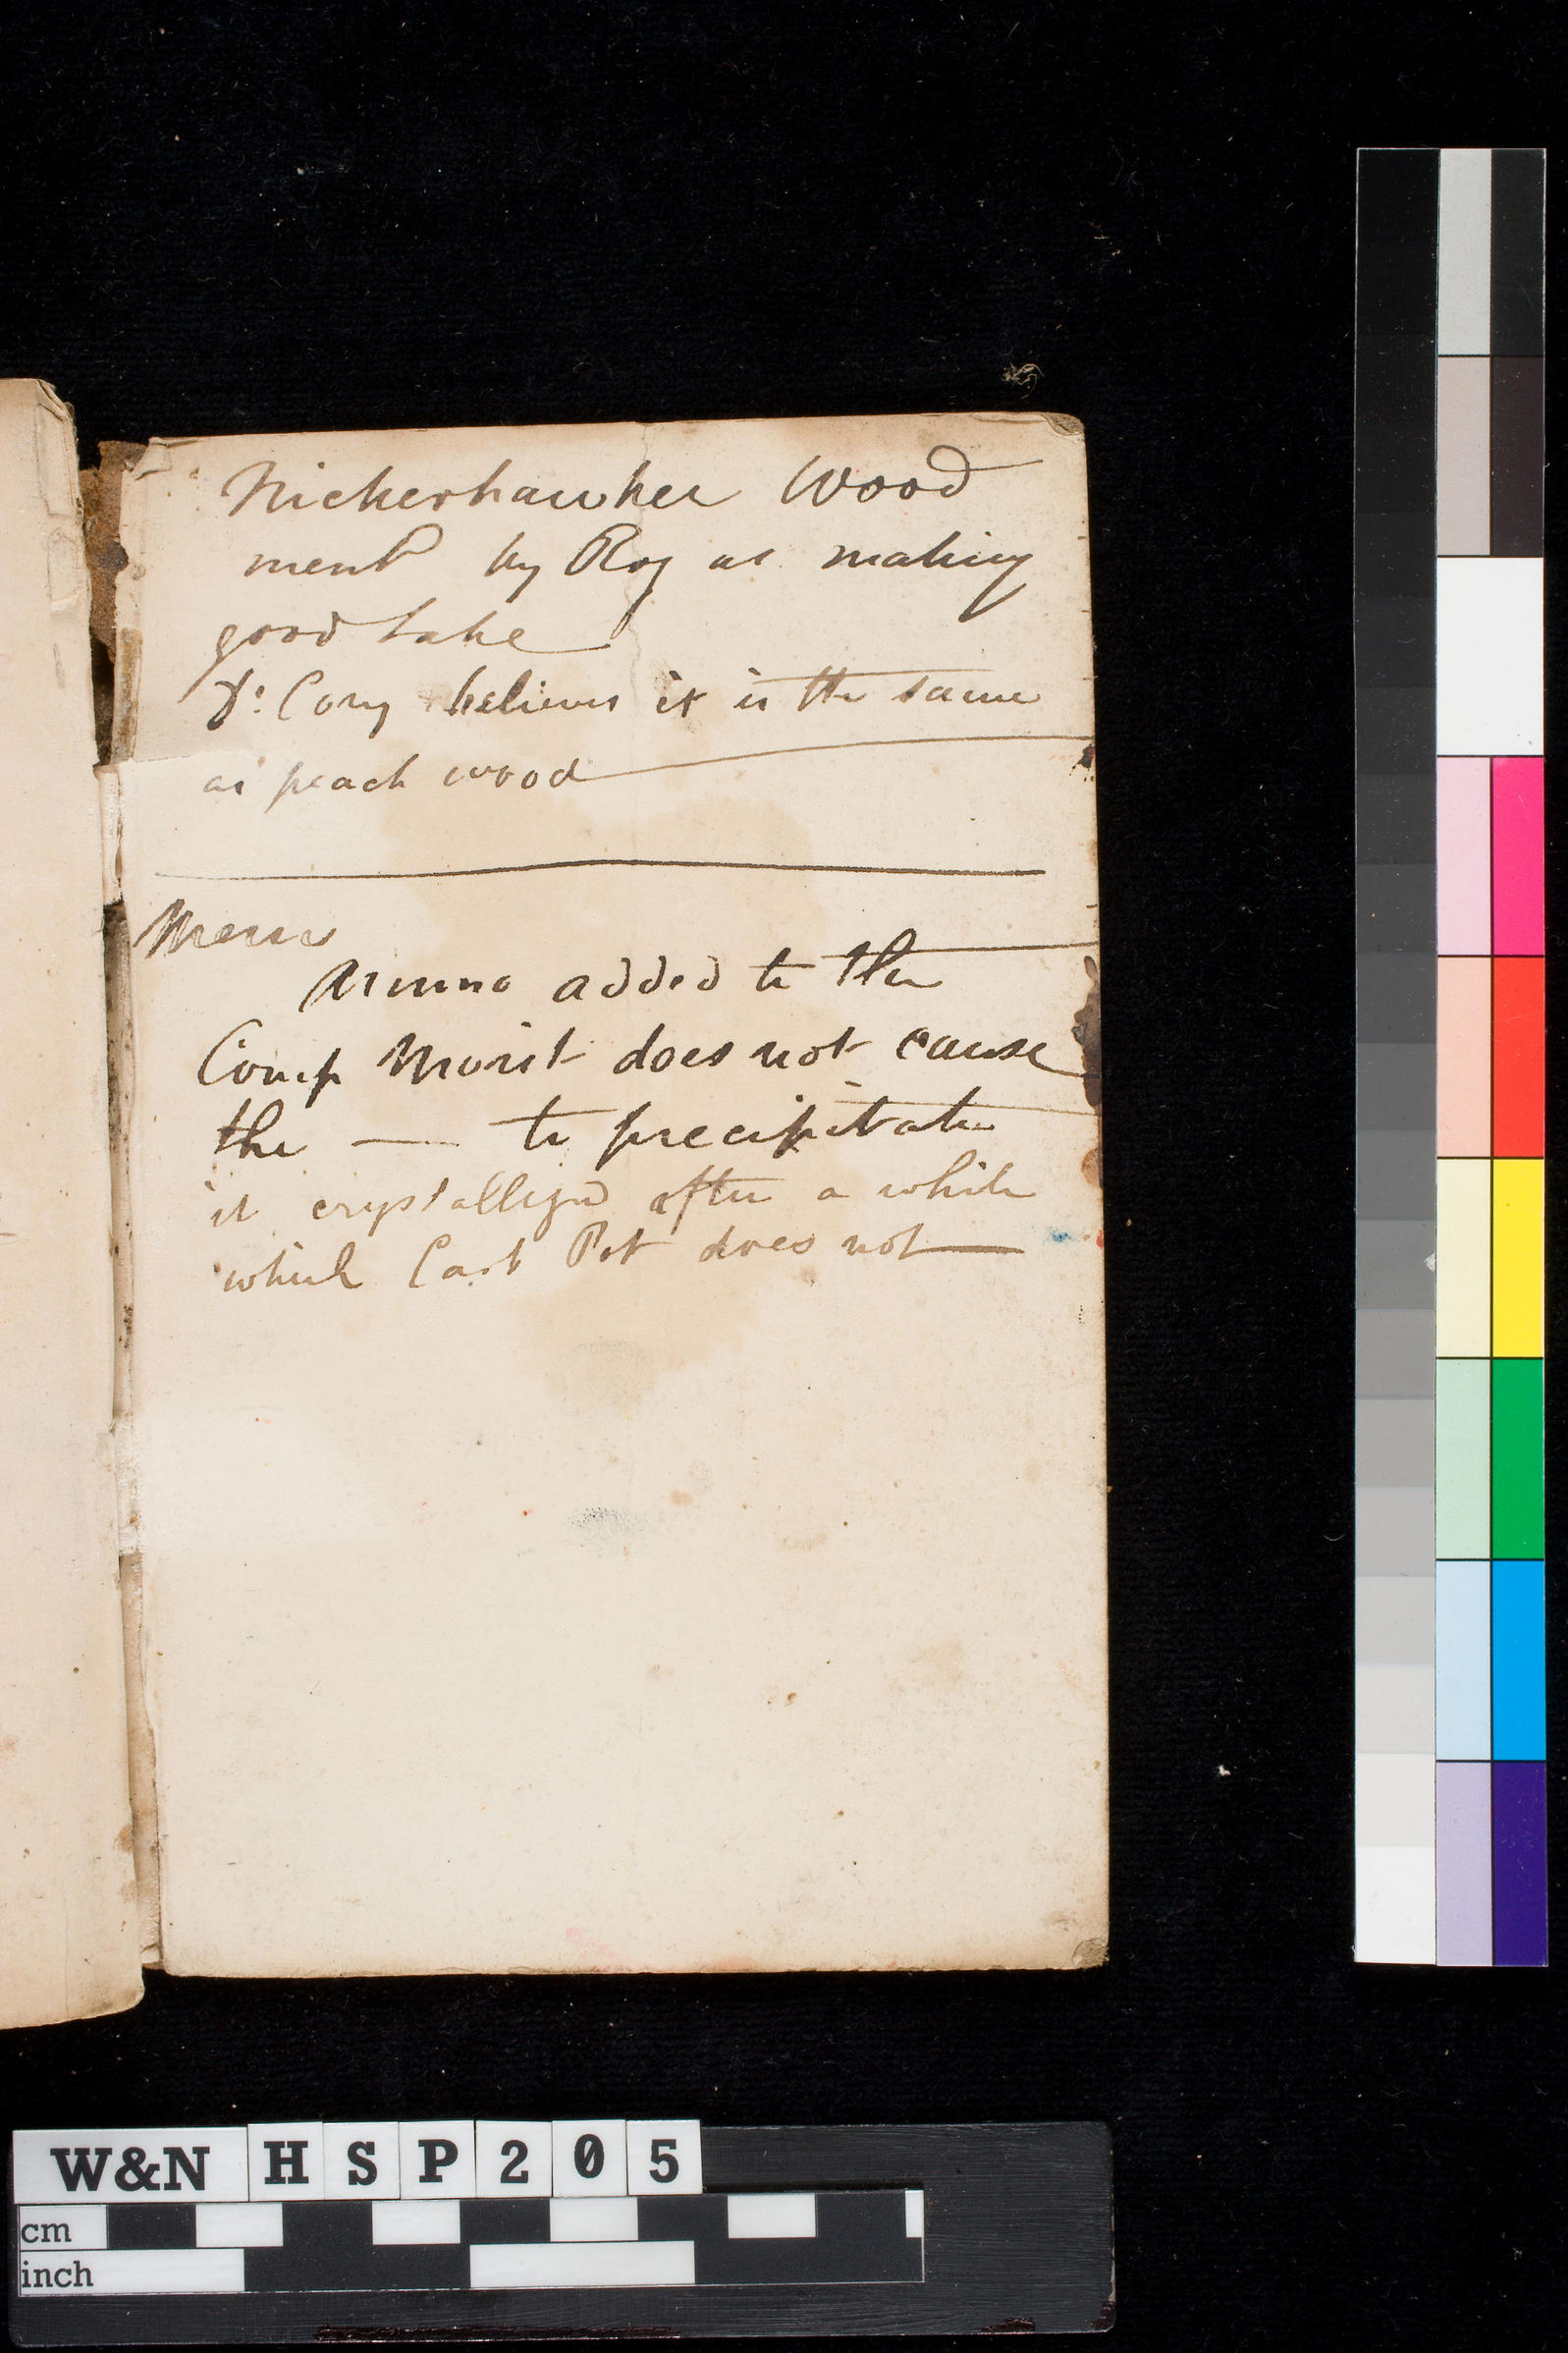 Nickerhawker Wood
ment.d by Roy as making
good Lake
Dr: Cory believes it is the same
as peach wood
Mem
Ammo added to the
Comp Moist does not cause
the — to precipitate
it crystallized after a while
which Carb Pot does not —
W&N HSP205
cm
inch